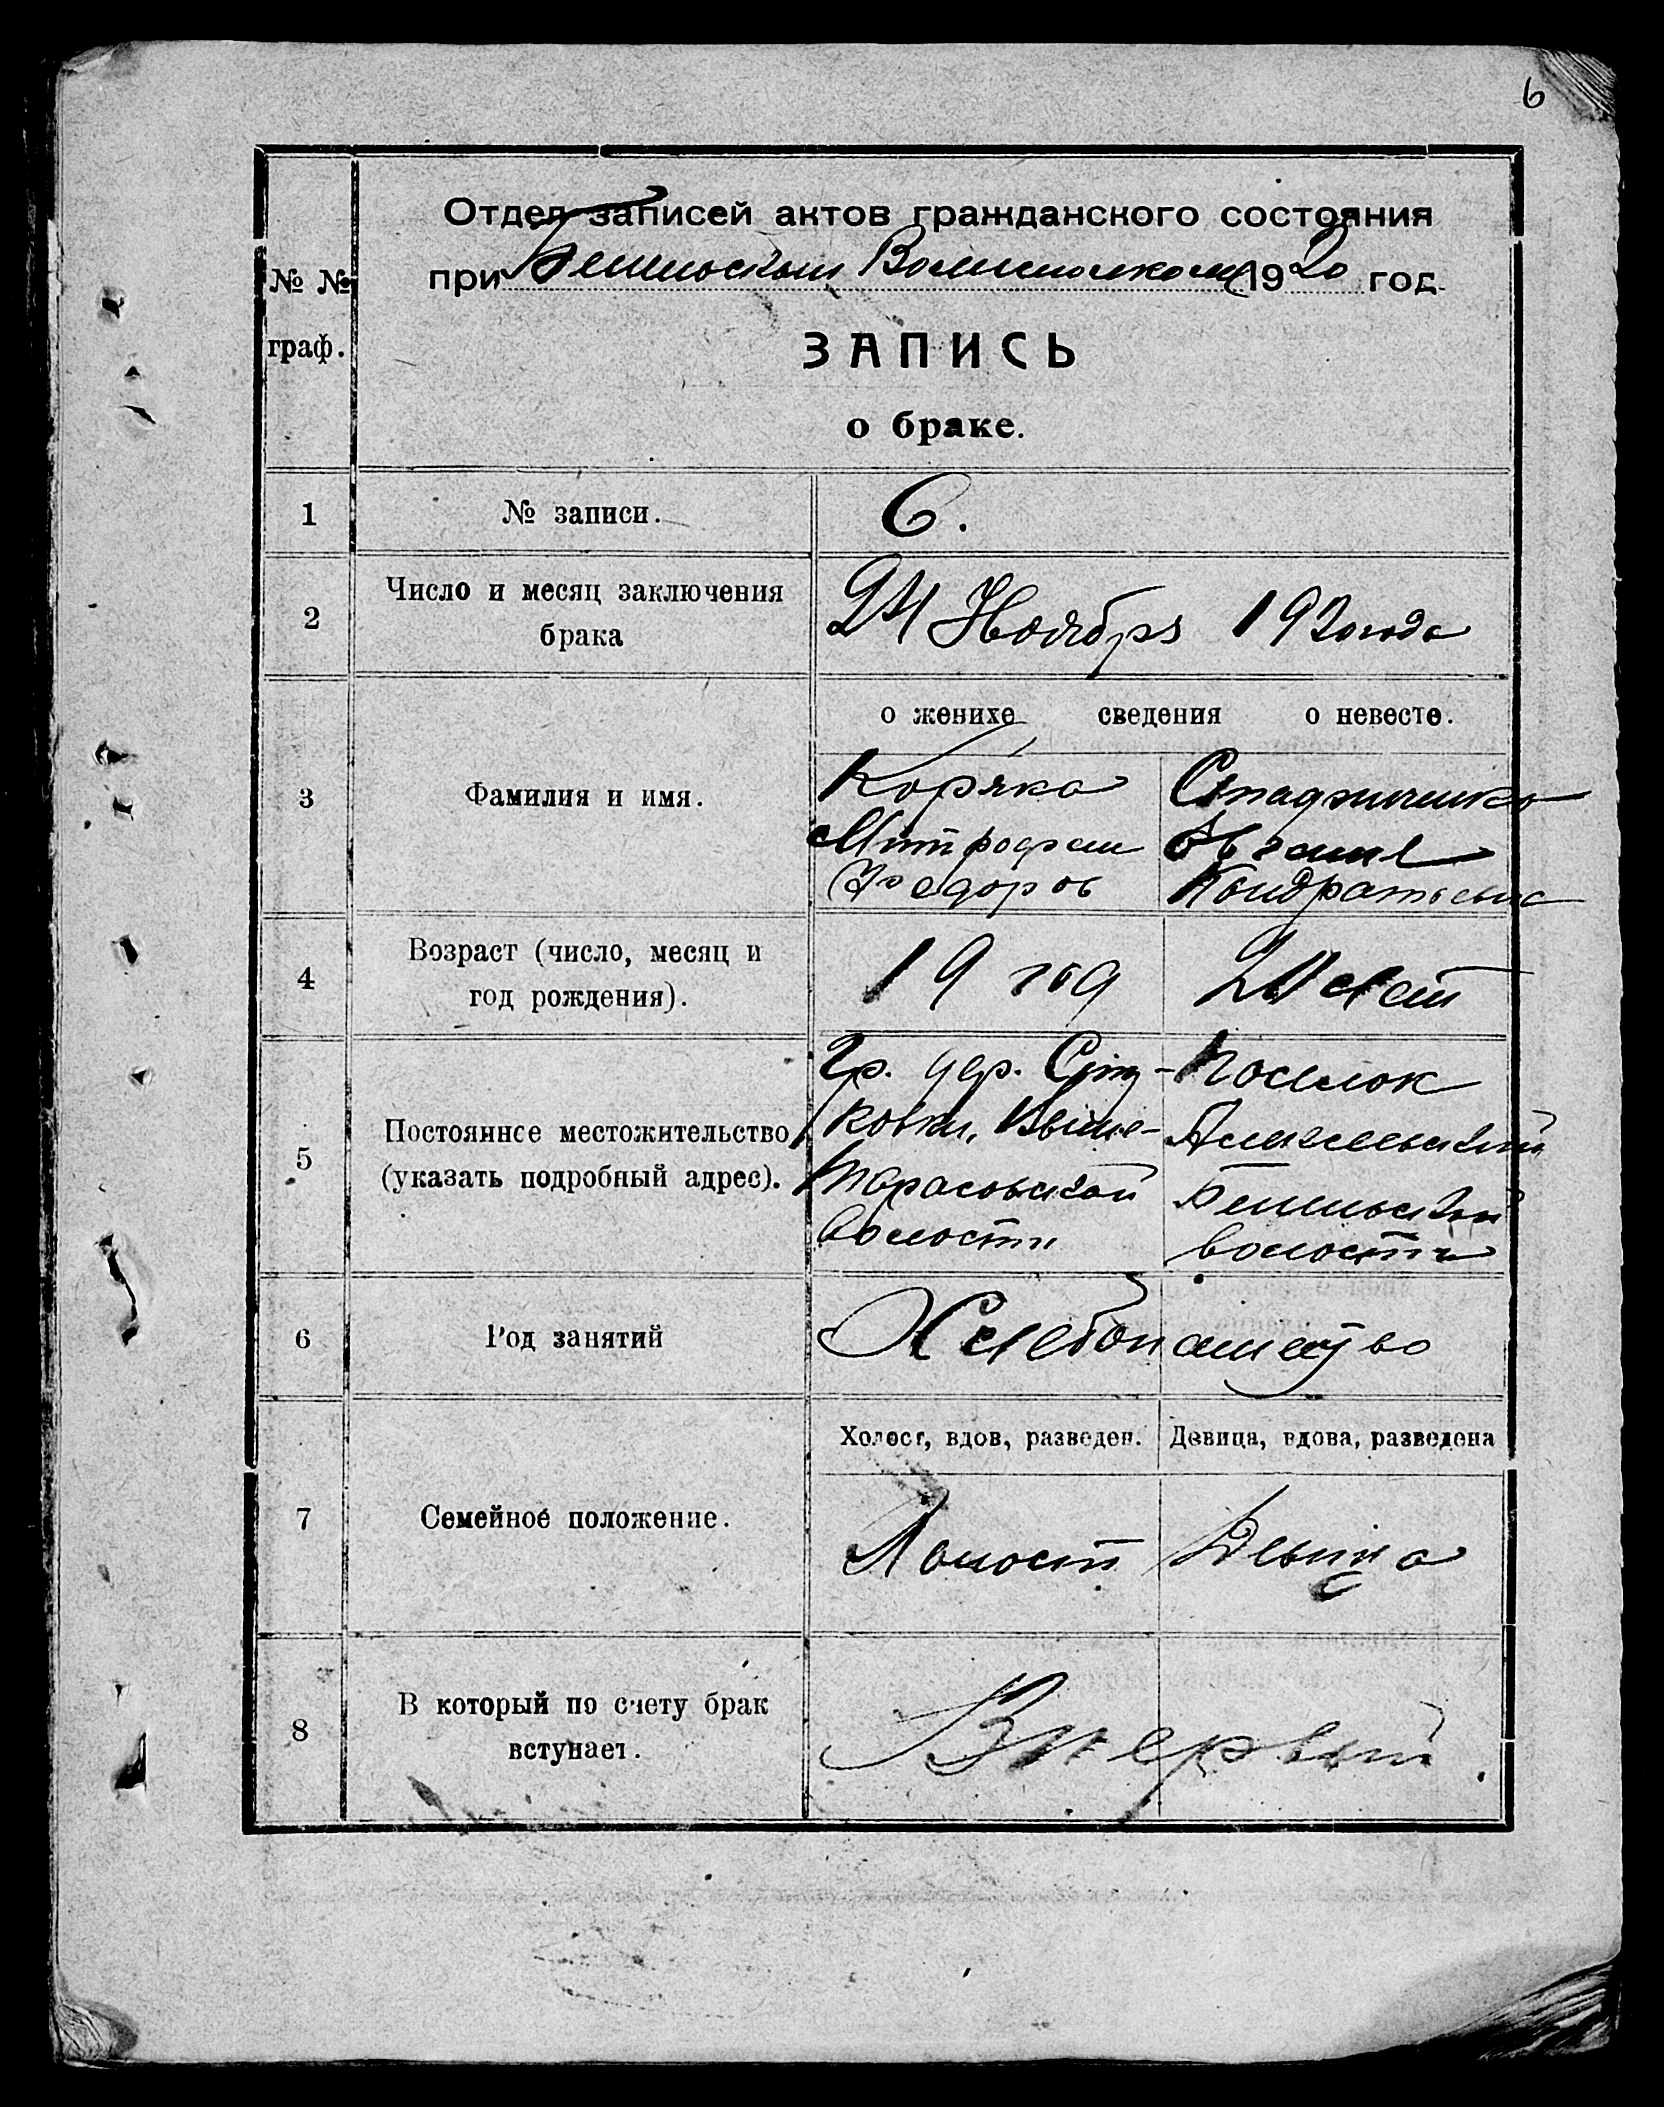 6
Отдел записей актов гражданского состояния
при Волисполкоме 1920 год.
№ №
граф.
ЗАПИСЬ
о браке.
1 № записи. 6.
2 Число и месяц заключения
брака
24 Ноября 1920 года
о женихе сведения о невесте.
3 Фамилия и имя.
Коряка
Митрофан
Федоров
Кондратьевна
4 Возраст (число, месяц и
год рождения).
19 год
20 лет
5 Постоянное местожительство
(указать подробный адрес).
Гр. дер.
Тарасовской
волости
Поселок
волости
6 Род занятий
Хлебопашество
Холост, вдов, разведен. Девица, вдова, разведена
7 Семейное положение.
Холост Девица
8 В который по счету брак
вступает.
В первый.